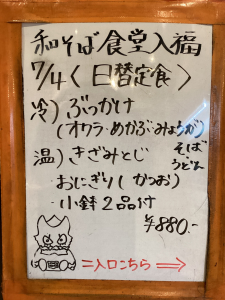 和そば食堂入福
7/4〈日替定食〉
冷）ぶっかけ
(オクラ・めかぶ・みょうが)
そば・
うどん
温）きざみとじ
・おにぎり(かつお)
・小鉢2品付
¥880.-
=入口こちら⇒